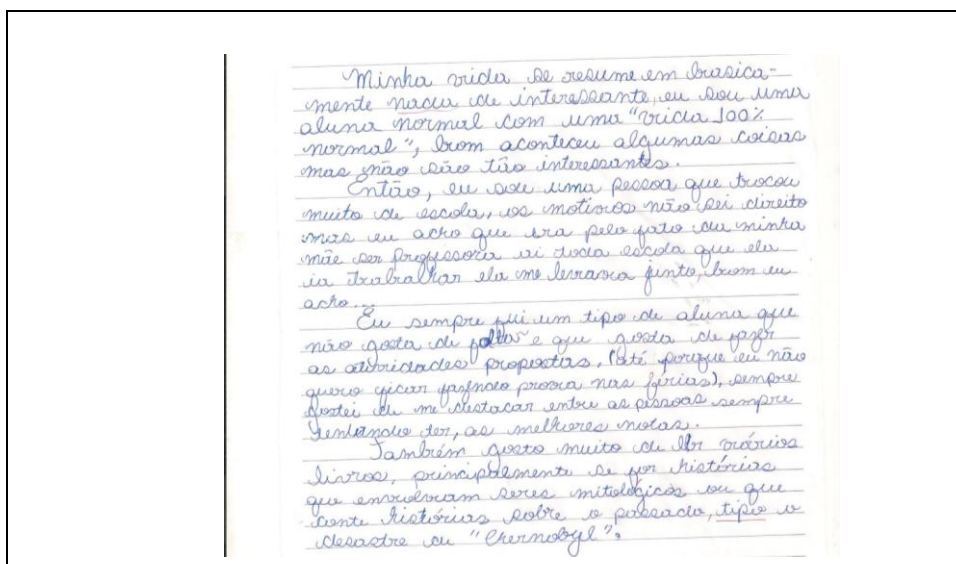 Minha vida se resume em basica-
mente nada de interessante, eu sou uma
aluna normal com uma "vida 100%
normal", bom aconteceu algumas coisas
mas não são tão interessantes.
Então, eu sou uma pessoa que trocou
muito de escola, os motivos não sei direito
mas eu acho que era pelo fato da minha
mãe ser professora ai toda escola que ela
ia trabalhar ela me levava junto, bom eu
acho...
Eu sempre fui um tipo de aluna que
não gosta de faltar e que gosta de fazer
as atividades propostas, (até porque eu não
quero ficar fazendo prova nas férias), sempre
gostei de me destacar entre as pessoas sempre
tentando ter, as melhores notas.
Também gosto muito de ler vários
livros, principalmente se for histórias
que envolvam seres mitológicos ou que
conte histórias sobre o passado, tipo o
desastre de "Chernobyl".